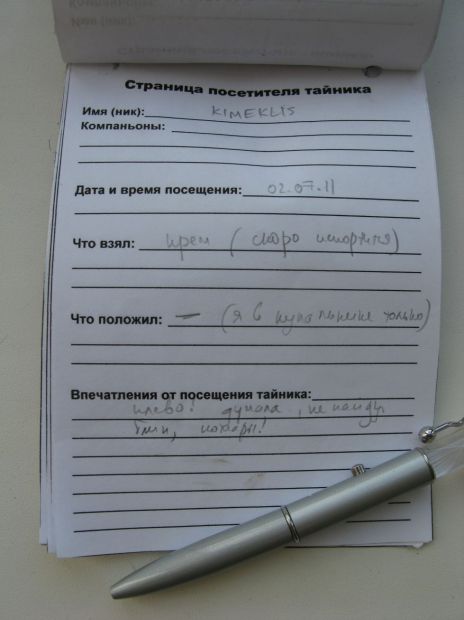 Страница посетителя тайника
Имя (ник): KIMEKLIS
Компаньоны:
Дата и время посещения: 02.07.11
Что взял: крем (скоро испортится)
Что положил: — (я в купальнике только)
Впечатления от посещения тайника:
клево! думала, не найду